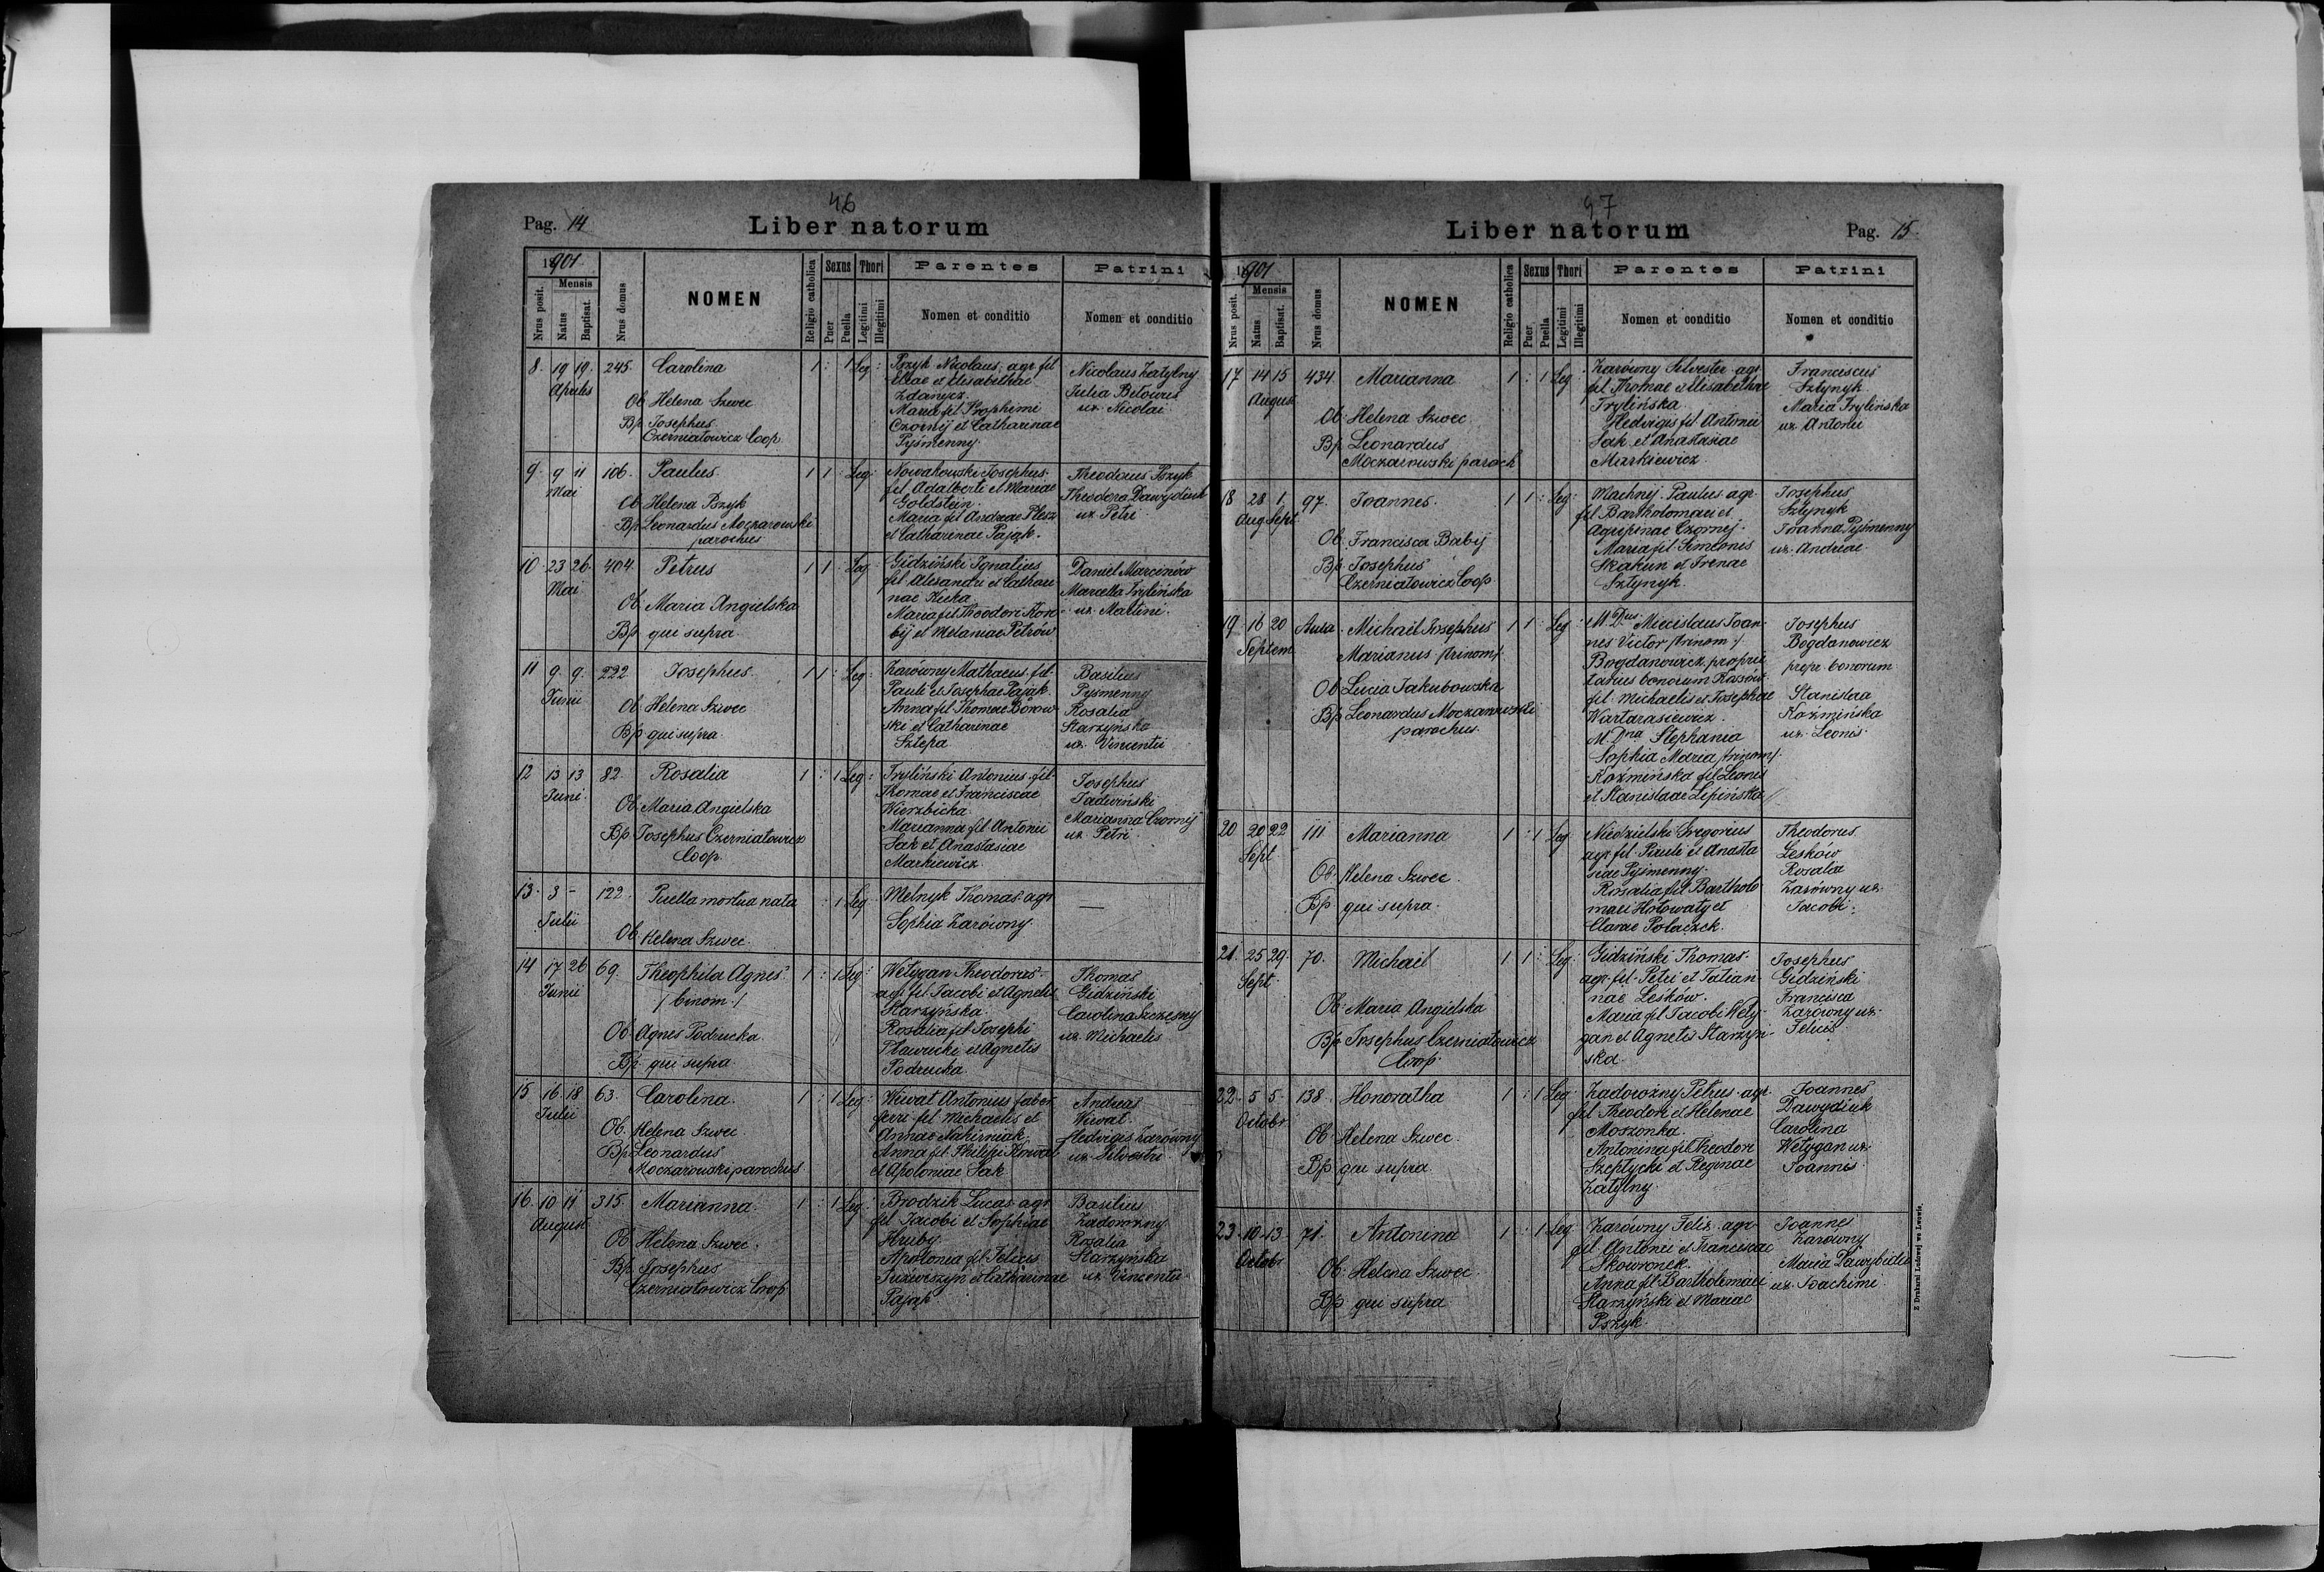 46
Pag. 14
Liber natorum
1901
Nrus posit.
Mensis
Natus
Baptisat.
Nrus domus
NOMEN
Religio catholica
Sexus
Puer
Puella
Thori
Legitimi
Illegitimi
Parentes
Nomen et conditio
Patrini
Nomen et conditio
8. 19 19. Aprilis 245. Carolina 1 : 1 Leg:
Ob. Helena Szwec
Bp. Josephus
Czerniatowicz Coop.
Pszyk Nicolaus agr fil
Eliae et Elisabethae
Zdanycz
Maria fil Trophimi
Czornij et Catharinae
Pyśmenny.
Nicolaus Zatylny
Julia Bitous
ux. Nicolai
9. 9 11 Mai 106. Paulus 1 1 : Leg:
Ob. Helena Pszyk
Bp. Leonardus Moczarowski
parochus
Nowakowski Josephus
fil Adalberti et Mariae
Goldstein.
Maria fil Andreae Plesz
et Catharinae Pająk.
Theodorus Pszyk
Theodora Dawydiuk
ux Petri
10. 23 26. Mai 404. Petrus 1 1 : Leg:
Ob. Maria Angielska
Bp. qui supra.
Gidziński Ignatius
fil Alexandri et Cathari
nae
Maria fil Theodori
bij et Melaniae Petrów
Daniel Marcinów
Marcella Trylińska
ux. Martini.
11 9. 9. Junii 222 Josephus. 1 1 : Leg:
Ob. Helena Szwec
Bp. qui supra.
Zarówny Mathaeus fil
Pauli et Josephae Pająk.
Anna fil Thomae Borow
ski et Catharinae
Sztepa
Basilius
Pyśmenny
Rosalia
Starzyńska
ux. Vincentii
12 13 13 Juni 82. Rosalia 1 : 1 Leg:
Ob. Maria Angielska
Bp. Josephus Czerniatowicz
Coop.
Tryliński Antonius fil
Thomae et Franciscae
Wierzbicka.
Marianna fil Antonii
Sak et Anastasiae
Markiewicz.
Josephus
Jadwiński
Marianna Czornij
ux. Petri.
13. 3 - Julii 122. Puella mortua nata : 1 Leg:
Ob. Helena Szwec
Melnyk Thomas agr
Sophia Zarówny.
—
14 17 26 Junii 69. Theophila Agnes 1 : 1 Leg:
/:binom:/
Ob. Agnes Podrucka
Bp. qui supra
Wetygan Theodorus
agr. fil. Jacobi et Agnetis
Starzyńska.
Rosalia fil Josephi
Pławucki et Agnetis
Podrucka.
Thomas
Gidziński
Carolina Szczesny
ux Michaelis
15 16 18 Julii 63. Carolina. 1 : 1 Leg:
Ob. Helena Szwec
Bp. Leonardus
Moczarowski parochus
Wiwat Antonius faber
ferri fil Michaelis et
Annae Nahirniak.
Anna fil. Philippi
et Apoloniae Sak
Andreas
Wiwat.
Hedvigis Zarówny
ux. Silvestri
16. 10 11 August 315. Marianna. 1 : 1 Leg:
Ob. Helena Szwec.
Bp. Josephus
Czerniatowicz Coop
Brodzik Lucas agr
fil Jacobi et Sophiae
Hruby
Apolonia fil Felicis
et Catharinae
Pająk
Basilius
Zadorozny
Rosalia
Starzyńska
ux Vincentii
47
Liber natorum
Pag. 15
1901
Nrus posit.
Mensis
Natus
Baptisat.
Nrus domus
NOMEN
Religio catholica
Sexus
Puer
Puella
Thori
Legitimi
Illegitimi
Parentes
Nomen et conditio
Patrini
Nomen et conditio
17 14 15 August. 434 Marianna 1 : 1 Leg:
Ob. Helena Szwec.
Bp. Leonardus
Moczarowski paroch
Zarówny Silvester agr
fil Thomae et Elisabethae
Trylińska.
Hedvigis fil Antonii
Sak et Anastasiae
Markiewicz.
Franciscus
Sztynyk.
Maria Trylińska
ux Antonii
18 28 1. Aug Sept. 97. Joannes. 1 1 : Leg:
Ob. Francisca Babij
Bp. Josephus
Czerniatowicz Coop
Machnij Paulus agr
fil Bartholomaei et
Agripinae Czornej.
Maria fil Simeonis
Skakun et Irenae
Sztynyk.
Josephus
Sztynyk
Joanna Pyśmenny
ux. Andreae
19. 16 20 Septem Aula. Michael Josephus 1 1 : Leg:
Marianus /trinom/.
Ob. Lucia Jakubowska
Bp. Leonardus Moczarowski
parochus.
M. Dnus Miecislaus Joan
nes Victor /trinom:/
Bogdanowicz proprie
tarius bonorum
fil Michaelis et Josephae
Wartarasiewicz.
M. Dna Stephania
Sophia Maria /trinom/.
Koźmińska fil Leonis
et Stanislaae Lepińska
Josephus
Bogdanowicz
propr. bonorum
Stanislaa
Koźmińska
ux. Leonis.
20 20 22 Sept. 111 Marianna 1 : 1 Leg
Ob. Helena Szwec.
Bp. qui supra.
Niedzielski Gregorius
agr. fil. Pauli et Anasta
siae Pyśmenny.
Rosalia fil Bartholo
maei Hołowaty et
Clarae Polaczek.
Theodorus
Lesków
Rosalia
Zarówny ux.
Jacobi.
21. 25 29. Sept. 70. Michael 1 1 : Leg:
Ob. Maria Angielska
Bp. Josephus Czerniatowicz
Coop.
Gidziński Thomas
agr. fil. Petri et Tatian
nae Lesków.
Maria fil Jacobi Wety
gan et Agnetis Starzyń
ska.
Josephus
Gidziński
Francisca
Zarówny ux.
Felicis
22. 5 5. Octobr. 138. Honoratha 1 : 1 Leg:
Ob. Helena Szwec.
Bp. qui supra
Zadorożny Petrus agr.
fil Theodori et Helenae
Moszonka.
Antonina fil Theodori
Szeptycki et Reginae
Zatylny.
Joannes
Dawydiuk
Carolina
Wetygan ux.
Joannis.
23. 10 13. Octobr 71. Antonina 1 : 1 Leg
Ob. Helena Szwec.
Bp. qui supra
Zarówny Felix agr.
fil Antonii et Franciscae
Skowronek.
Anna fil. Bartholomaei
Starzyński et Mariae
Pszyk.
Joannes
Zarówny
Maria
ux. Joachimi
Z Drukarni Ludowej we Lwowie.